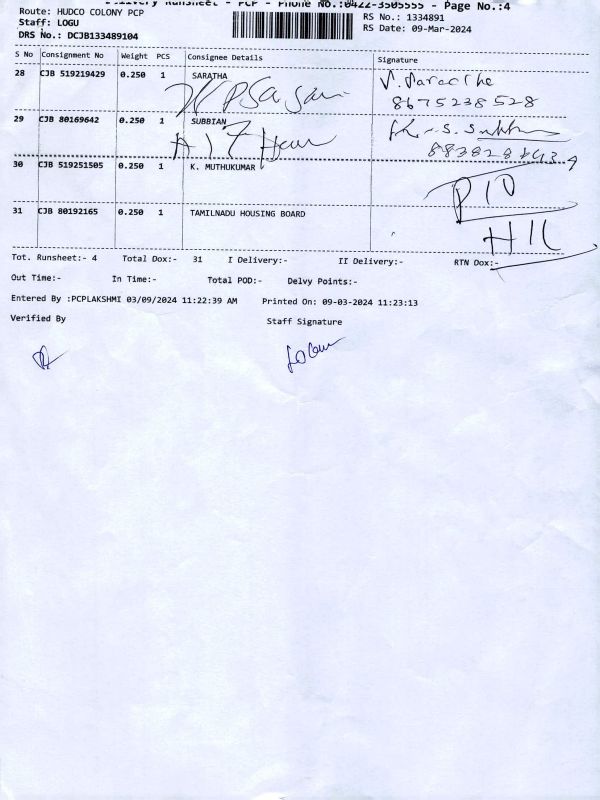 Delivery Runsheet - PCP - Phone No.:0422-3505555 - Page No.:4
Route: HUDCO COLONY PCP
RS No.: 1334891
Staff: LOGU
RS Date: 09-Mar-2024
DRS No.: DCJB133489104
S No Consignment No Weight PCS Consignee Details Signature
28 CJB 519219429 0.250 1 SARATHA
8675238528
29 CJB 80169642 0.250 1 SUBBIAN
S. Subbu
30 CJB 519251505 0.250 1 K. MUTHUKUMAR
31 CJB 80192165 0.250 1 TAMILNADU HOUSING BOARD
Tot. Runsheet:- 4 Total Dox:- 31 I Delivery:- II Delivery:- RTN Dox:-
Out Time:- In Time:- Total POD:- Delvy Points:-
Entered By :PCPLAKSHMI 03/09/2024 11:22:39 AM Printed On: 09-03-2024 11:23:13
Verified By Staff Signature